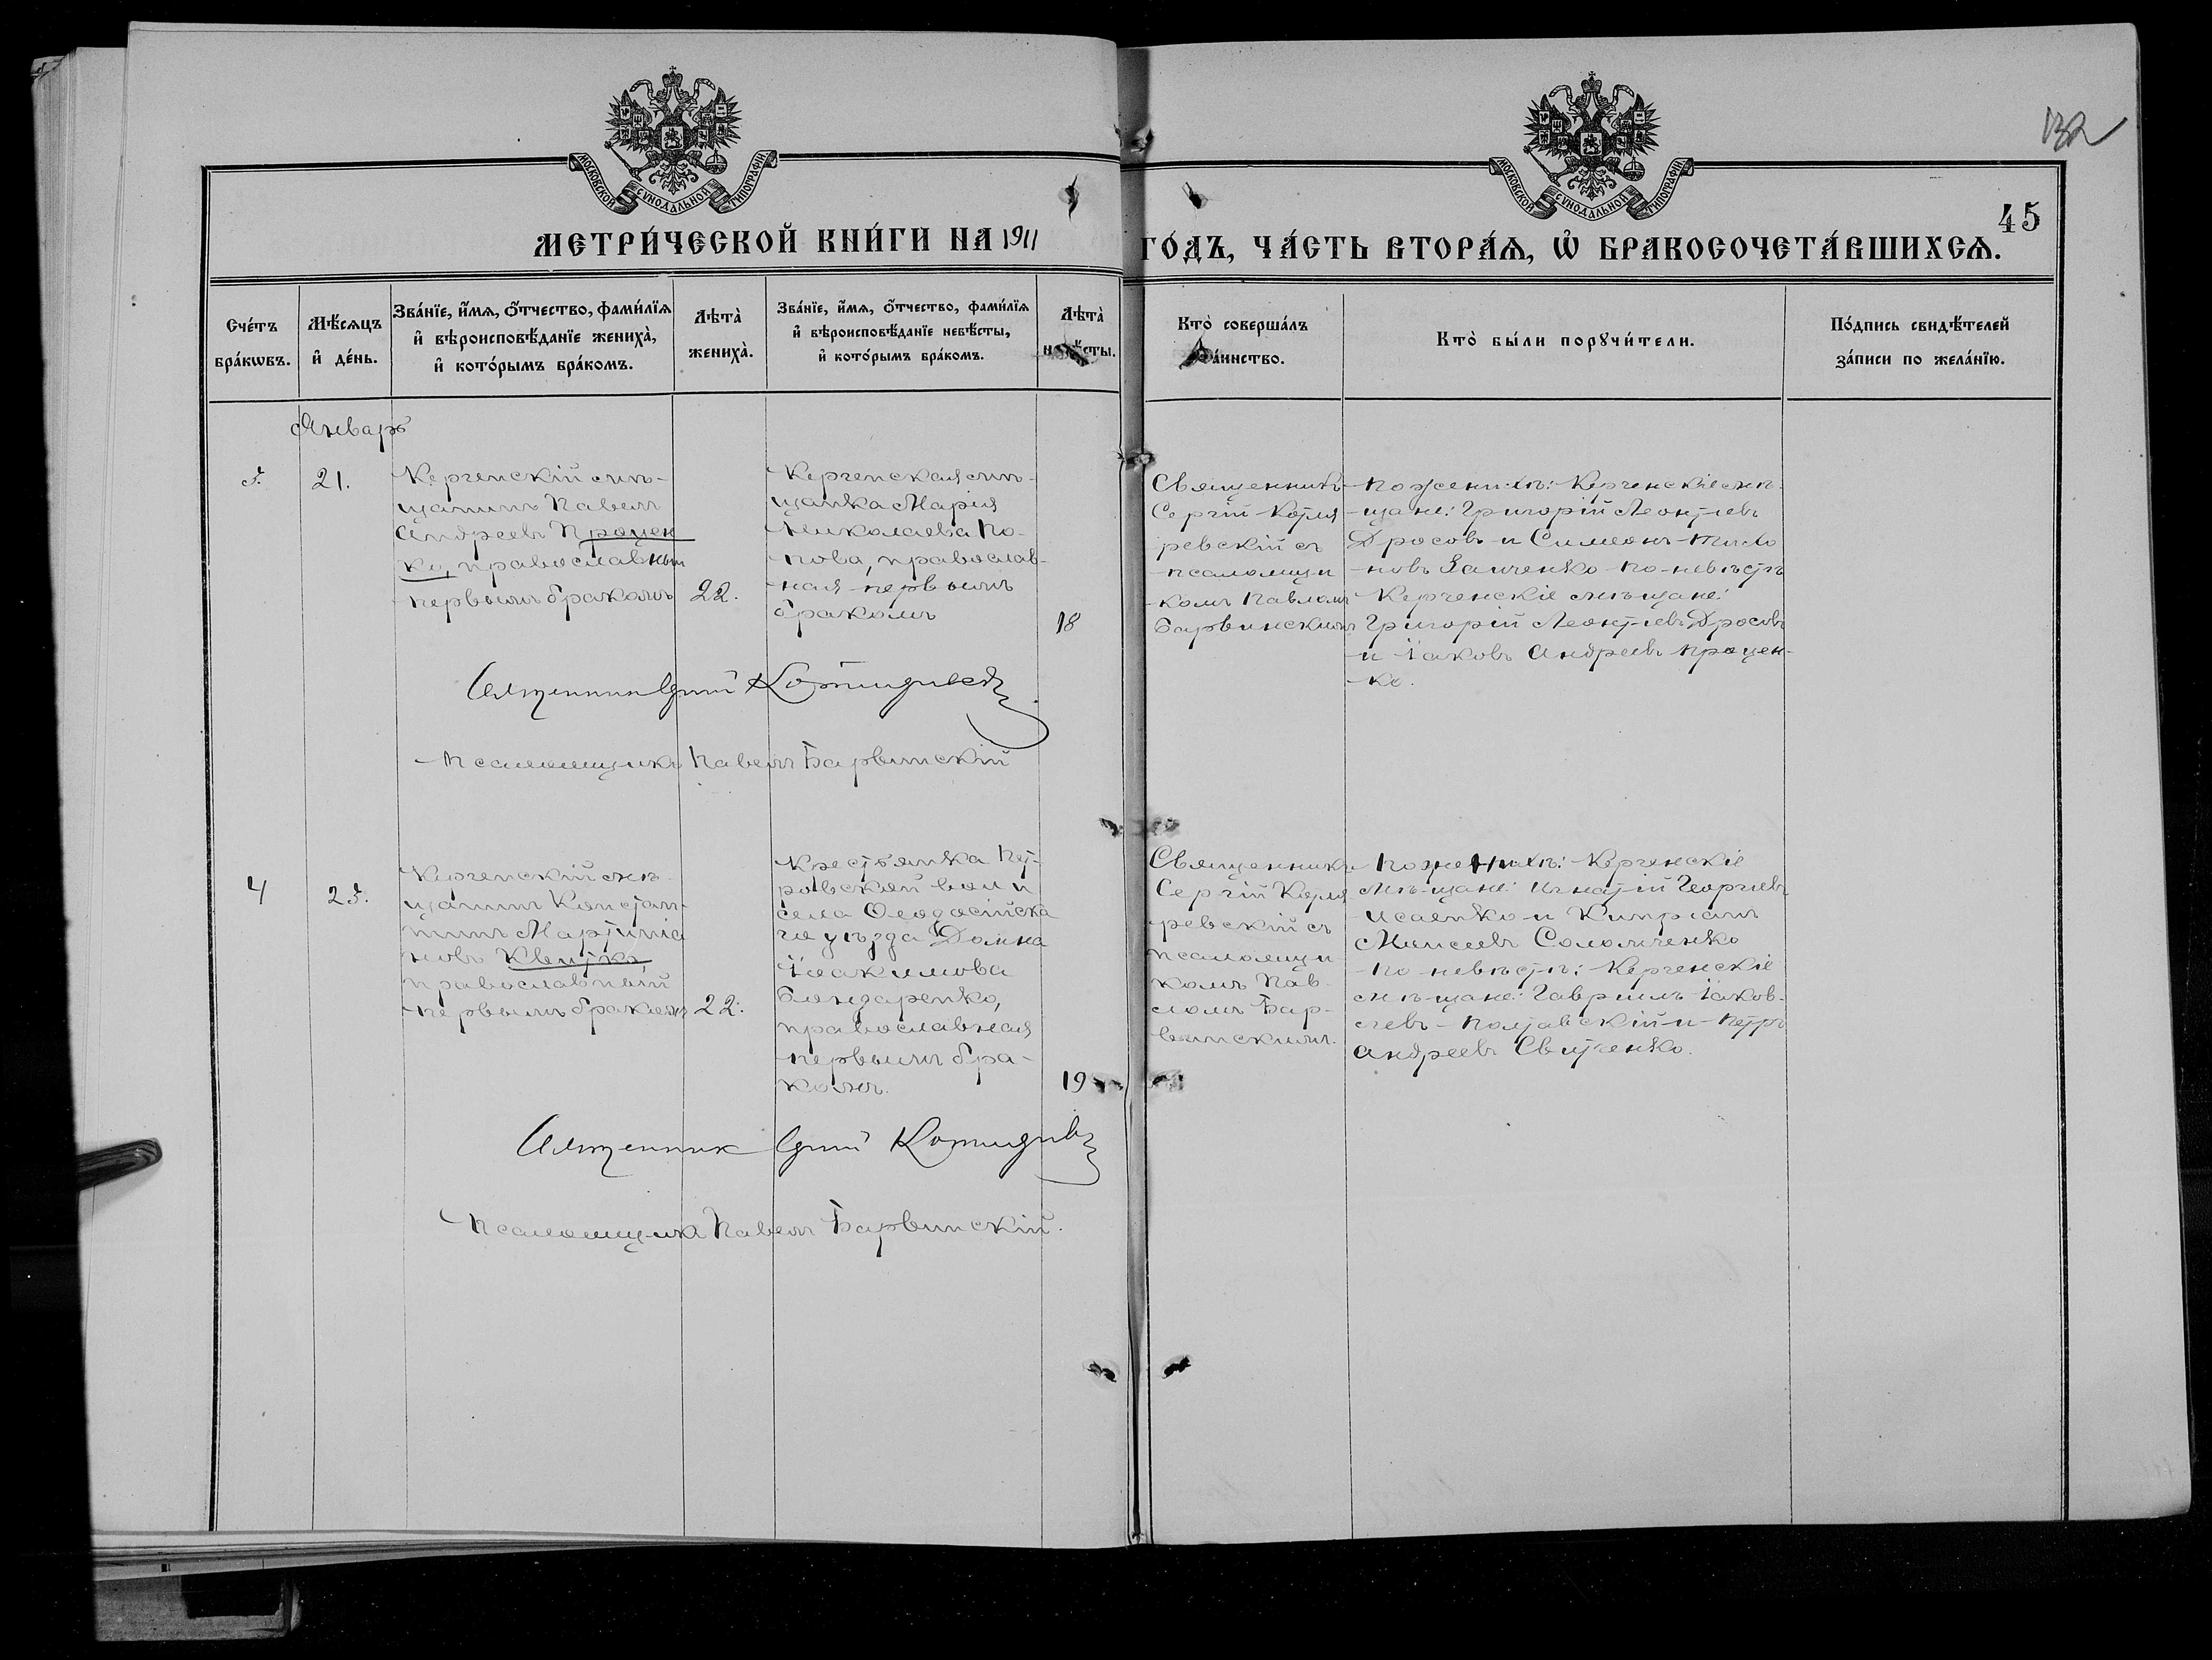 132
МОСКОВСКОЙ СѴНОДАЛЬНОЙ ТИПОГРАФІИ
МОСКОВСКОЙ СѴНОДАЛЬНОЙ ТИПОГРАФІИ
45
МЕТРИ́ЧЕСКОЙ КНИ́ГИ НА 1911
ГО́ДЪ, ЧА́СТЬ ВТОРА́Ѧ, Ѡ҆ БРАКОСОЧЕТА́ВШИХСѦ.
Сче́тъ
бра́кѡвъ.
Мѣ́сѧцъ
и҆ де́нь.
Зва́нїе, и҆́мѧ, ѻ҆́тчество, фами́лїѧ
и҆ вѣроисповѣ́данїе жениха̀,
и҆ кото́рымъ бра́комъ.
Лѣта̀
жениха̀.
Зва́нїе, и҆́мѧ, ѻ҆́тчество, фами́лїѧ
и҆ вѣроисповѣ́данїе невѣ́сты,
и҆ кото́рымъ бра́комъ.
Лѣта̀
невѣ́сты.
Кто̀ соверша́лъ
та́инство.
Кто̀ бы́ли порꙋчи́тели.
По́дпись свидѣ́телей
за́писи по жела́нїю.
Январь
3.
21.
Керченскій мѣ-
щанинъ Павелъ
Андреевъ Процен
ко, православный
первымъ бракомъ
22.
Керченская мѣ-
щанка Марія
Николаева По-
пова, православ-
ная первымъ
бракомъ
18
Священникъ
Сергій Котля
ревскій съ
псаломщи
комъ Павломъ
Барвинскимъ
По женихѣ: Керченскіе мѣ-
щане: Григорій Леонтьевъ
Дросовъ и Симеонъ
новъ Заиченко по невѣстѣ
Керченскіе мѣщане:
Григорій Леонтьевъ Дросовъ
и Іаковъ Андреевъ Процен-
ко.
Священникъ Сергій Котляревскій
Псаломщикъ Павелъ Барвинскій
4
23.
Керченскій мѣ-
щанинъ Констан-
тинъ Мартиніа
новъ Квитко,
православный
первымъ бракомъ
22.
Крестьянка Пет-
ровской вол и
села Ѳеодосійска
го уѣзда Домна
Іоакимова
Бондаренко,
православная
первымъ бра-
комъ.
19
Священникъ
Сергій Котля
ревскій съ
псаломщи
комъ Пав-
ломъ Бар-
винскимъ.
По женихѣ: Керченскіе
мѣщане: Игнатій Георгіевъ
Исаенко и Кипріанъ
Моисеевъ Соломченко
По невѣстѣ: Керченскіе
мѣщане: Гавріилъ Іаков-
левъ Полтавскій и Петръ
Андреевъ Свитченко.
Священник Сергій Котляревскій
Псаломщикъ Павелъ Барвинскій.